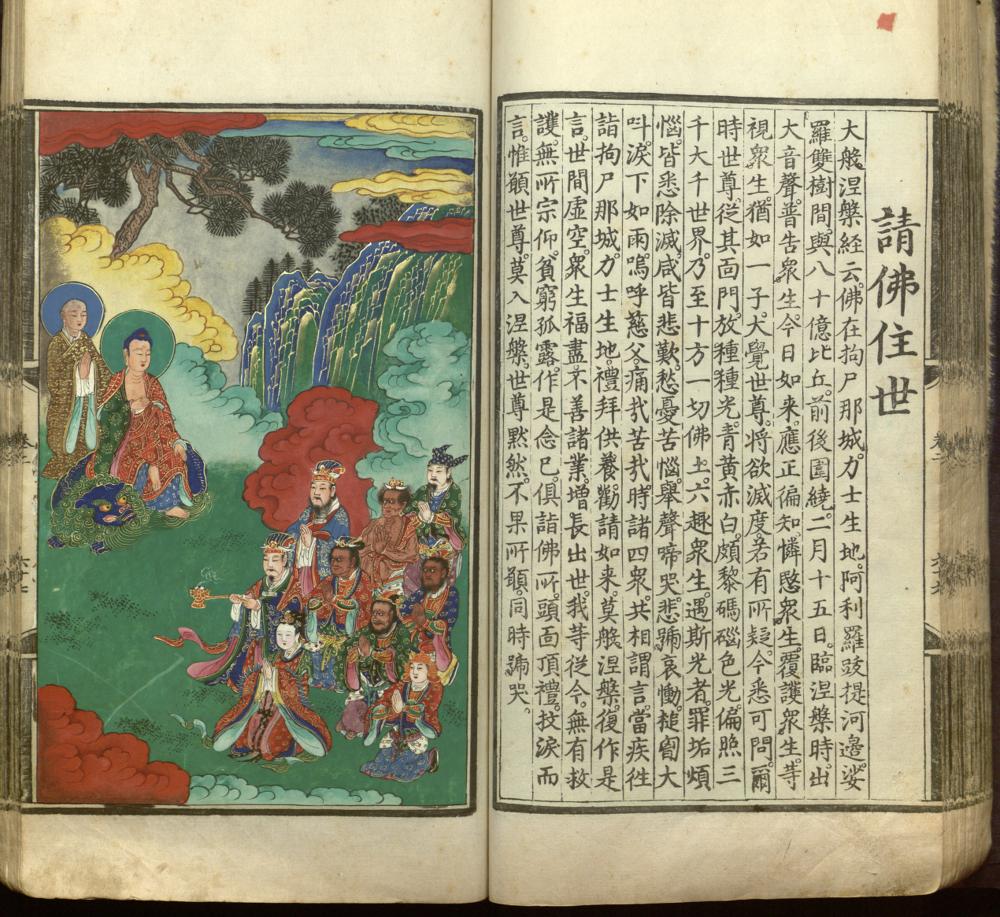 請佛住世
大般涅槃経云。佛在拘尸那城。力士生地。阿利羅跋提河邊。娑
羅雙樹間。與八十億比丘。前後圍繞。二月十五日。臨涅槃時。出
大音聲。普告衆生。今日如来。應正徧知。憐愍衆生。覆護衆生。等
視衆生。猶如一子。大覺世尊。將欲滅度。若有所疑。今悉可問。爾
時世尊。従其面門。放種種光。青黄赤白。頗黎碼碯色光。徧照三
千大千世界。乃至十方一切佛土。六趣衆生。遇斯光者。罪垢煩
惱。皆悉除滅。咸皆悲歎。愁憂苦惱。舉聲啼哭。悲號哀慟。槌胷大
叫。淚下如雨。嗚呼慈父。痛㢤苦㢤。時諸四衆。共相謂言。當疾徃
詣拘尸那城。力士生地。禮拜供養。勸請如来。莫般涅槃。復作是
言。世間虚空。衆生福盡。不善諸業。增長出世。我等従今。無有救
護。無所宗仰。貧窮孤露。作是念已。俱詣佛所。頭面頂禮。抆淚而
言。惟願世尊。莫入涅槃。世尊黙然。不果所願。同時號哭。